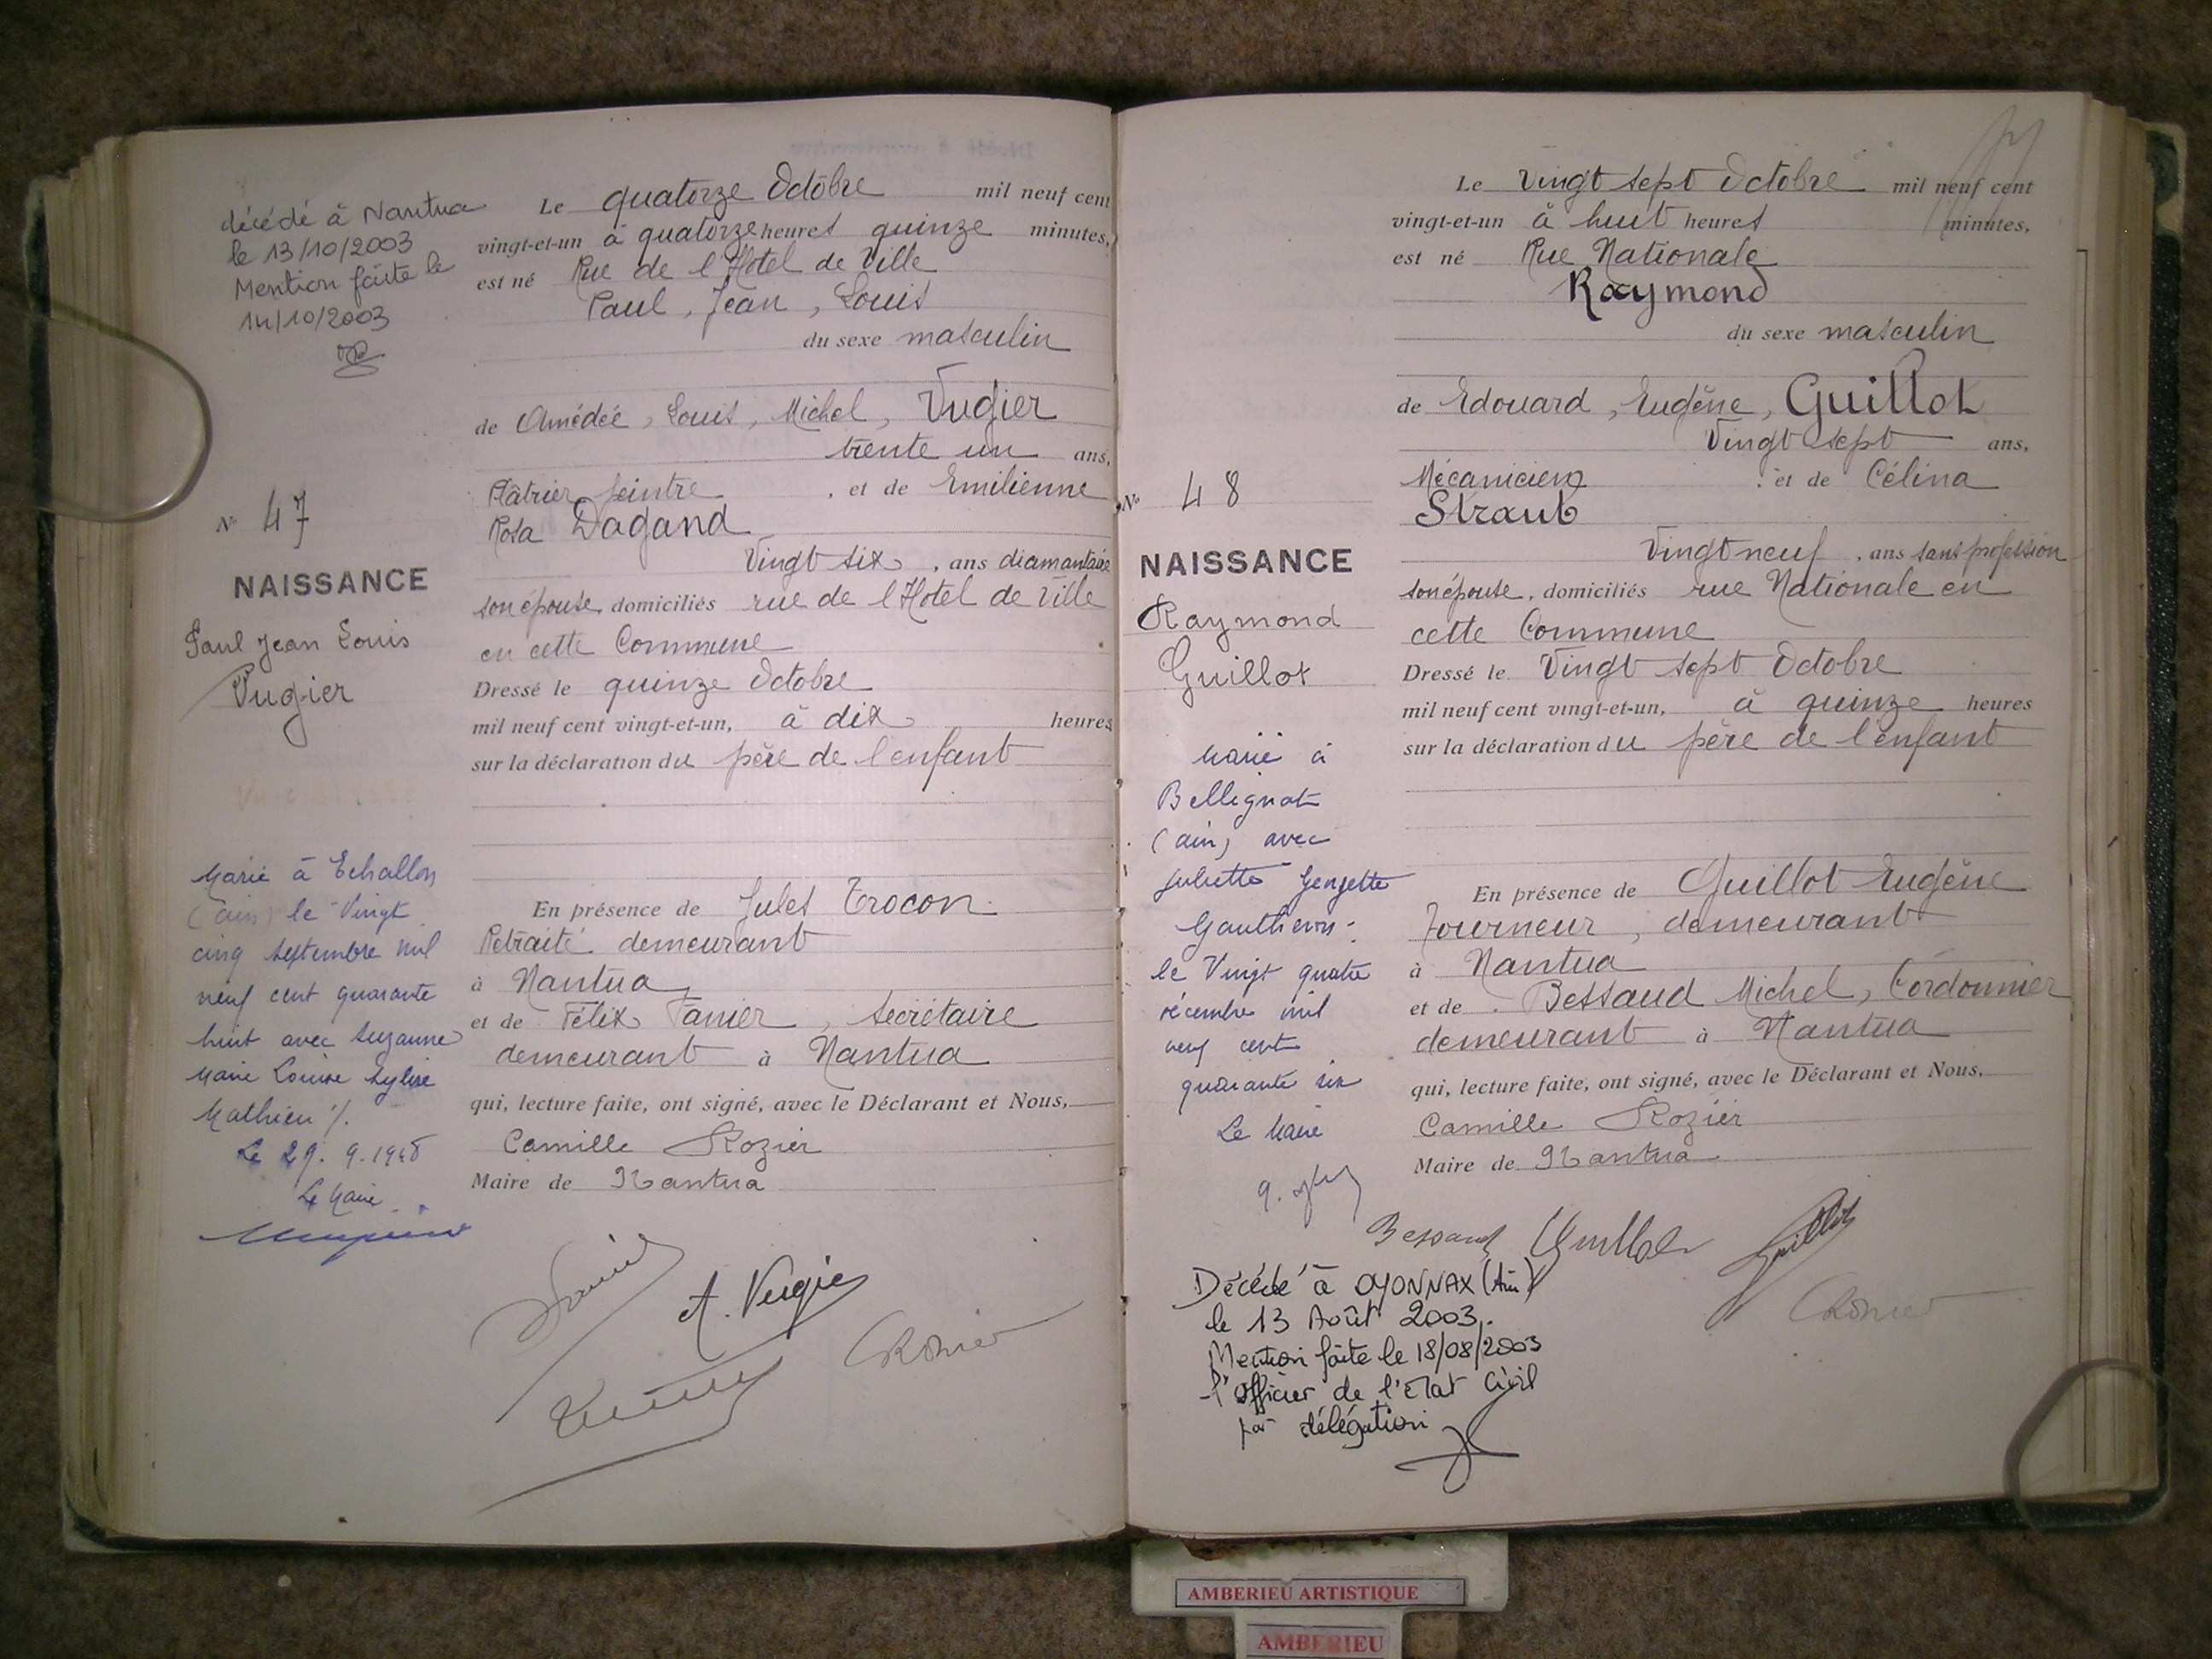 décédé à Nantua
le 13/10/2003
Mention faite le
14/10/2003
N° 47
NAISSANCE
Paul Jean Louis
Vugier
Marié à Echallon
(ain) le Vingt
cinq septembre mil
neuf cent quarante
huit avec Suzanne
Marie Louise
Mathieu ./.
Le 29. 9. 1948
Le Maire
Le quatorze Octobre mil neuf cent
vingt-et-un à quatorze heures quinze minutes,
est né Rue de l'Hotel de Ville
Paul, Jean, Louis
du sexe masculin
de Amédée, Louis, Michel, Vugier
trente un ans,
Plâtrier peintre, et de Emilienne
Rosa Dagand
Vingt six, ans diamantaire
son épouse, domiciliés rue de l'Hotel de Ville
en cette Commune
Dressé le quinze Octobre
mil neuf cent vingt-et-un, à dix heures
sur la déclaration du père de l'enfant
En présence de Jules Trocon
Retraité demeurant
à Nantua
et de Félix Tanier, Secrétaire
demeurant à Nantua
qui, lecture faite, ont signé, avec le Déclarant et Nous,
Camille Rozier
Maire de Nantua
A. Vugier
CRozier
N° 48
NAISSANCE
Raymond
Guillot
Marié à
Bellignat
(ain) avec
Juliette
le Vingt quatre
décembre mil
neuf cent
quarante six
Le Maire
Le Vingt sept Octobre mil neuf cent
vingt-et-un à huit heures minutes,
est né Rue Nationale
Raymond
du sexe masculin
de Edouard, Eugène, Guillot
Vingt sept ans,
Mécanicien, et de Célina
Straub
Vingt neuf, ans sans profession
son épouse, domiciliés rue Nationale en
cette Commune
Dressé le Vingt sept Octobre
mil neuf cent vingt-et-un, à quinze heures
sur la déclaration du père de l'enfant
En présence de Guillot Eugène
Tourneur, demeurant
à Nantua
et de Bessaud Michel, Cordonnier
demeurant à Nantua
qui, lecture faite, ont signé, avec le Déclarant et Nous,
Camille Rozier
Maire de Nantua
Bessaud Guillot Guillot
CRozier
Décédé à OYONNAX (Ain)
le 13 Août 2003.
Mention faite le 18/08/2003
l'officier de l'Etat Civil
par délégation
AMBERIEU ARTISTIQUE
AMBERIEU